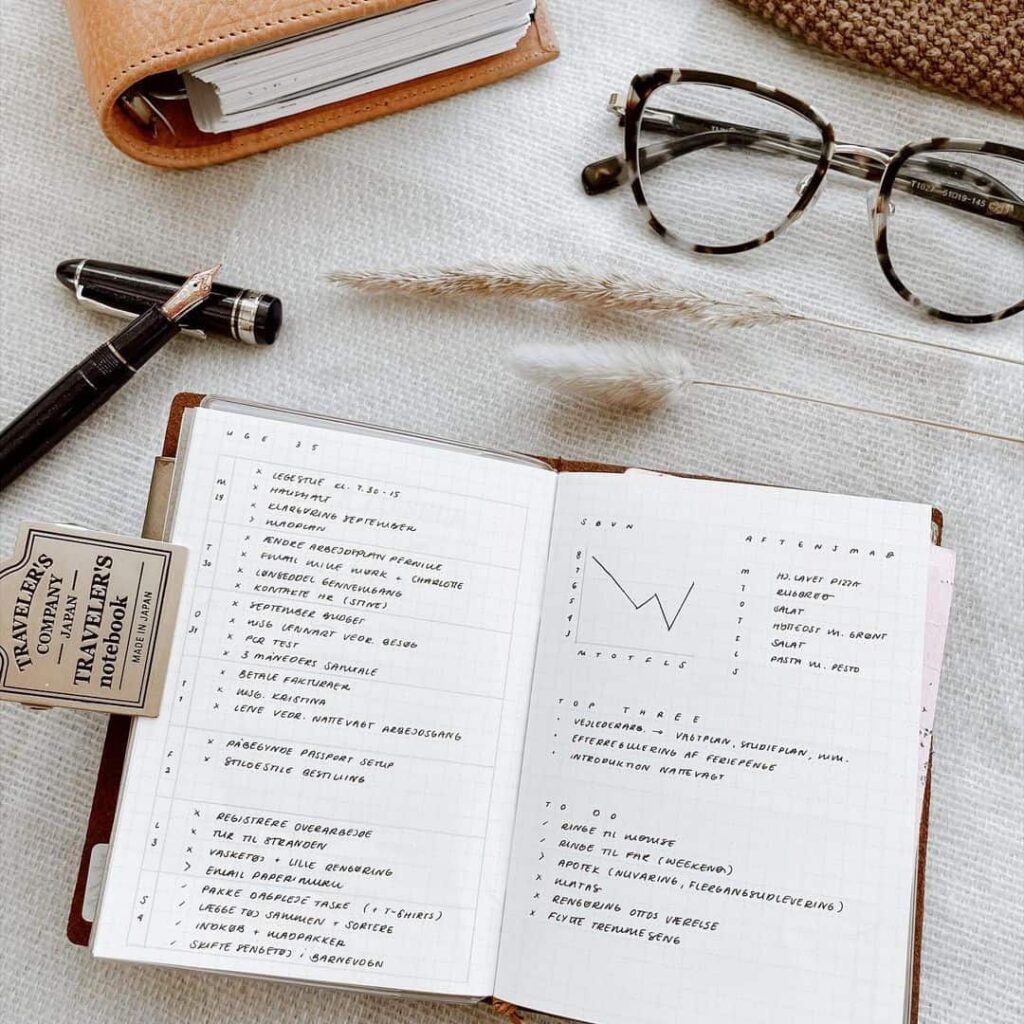 T1027 51□19-145
TRAVELER'S
COMPANY
JAPAN
TRAVELER'S
notebook
MADE IN JAPAN
UGE 35
M
29
× LEGESTUE KL. 9.30-15
× HAUSHALT
× KLARGØRING SEPTEMBER
> MADPLAN
T
30
× ÆNDRE ARBEJDSPLAN PERNILLE
× EMAIL MILIE MØRK + CHARLOTTE
× LØNSEDDEL GENNEMGANG
× KONTAKTE HR (STINE)
O
31
× SEPTEMBER BUDGET
× MSG LENNART VEDR. BESØG
× PCR TEST
× 3 MÅNEDERS SAMTALE
T
1
× BETALE FAKTURAER
× MSG. KRISTINA
× LENE VEDR. NATTEVAGT ARBEJDSGANG
F
2
× PÅBEGYNDE PASSPORT SETUP
× STILDESTILE BESTILLING
L
3
× REGISTRERE OVERARBEJDE
× TUR TIL STRANDEN
× VASKETØJ + LILLE RENGØRING
> EMAIL PAPERMURU
S
4
/ PAKKE DAGPLEJE TASKE (+ T-SHIRTS)
/ LÆGGE TØJ SAMMEN + SORTERE
/ INDKØB + MADPAKKER
/ SKIFTE SENGETØJ I BARNEVOGN
SØVN
8
7
6
5
4
3
M T O T F L S
AFTENSMAD
M HJ. LAVET PIZZA
T RUGBRØD
O SALAT
T HOTTEOST M. GRØNT
F SALAT
L PASTA M. PESTO
S
TOP THREE
· VEJLEDERARB. → VAGTPLAN, STUDIEPLAN, MM.
· EFTERREGULERING AF FERIEPENGE
· INTRODUKTION NATTEVAGT
TO DO
/ RINGE TIL MOMSE
/ RINGE TIL FAR (WEEKEND)
> APOTEK (NUVARING, FLERGANGSUDLEVERING)
× MATAS
× RENGØRING OTTOS VÆRELSE
× FLYTTE TREMMESENG